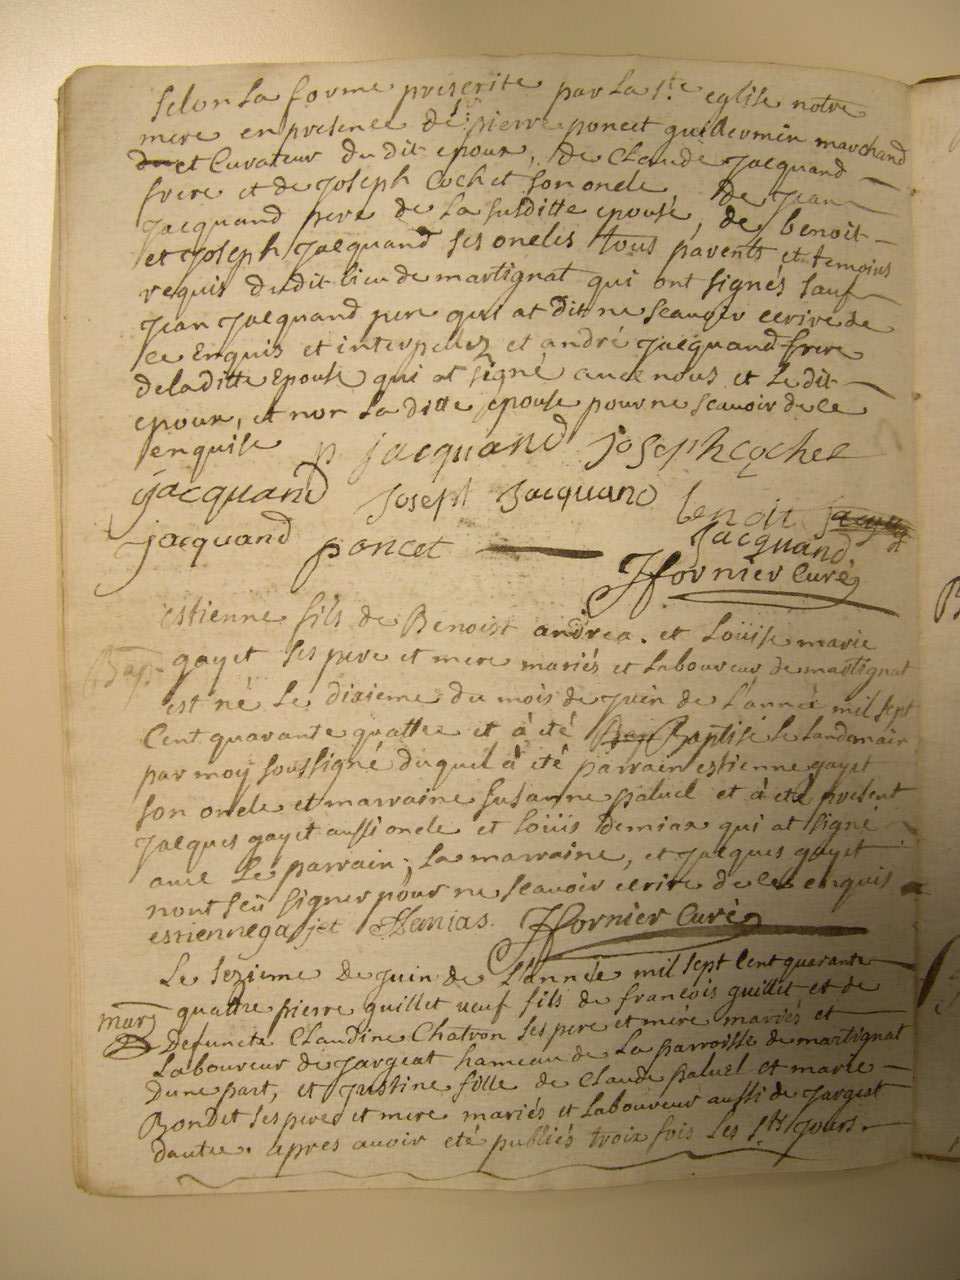 selon la forme prescrite par la s.te eglise notre
mere en presence de s.r pierre poncet guillermin marchand
et Curateur du dit epoux, de Claude Jacquand
frere et de Joseph Cochet son oncle, de Jean
Jacquand pere de la susditte epouse, de benoit
et Joseph Jacquand ses oncles tous parents et temoins
requis du dit lieu de martignat qui ont signés sauf
Jean Jacquand pere qui at dit ne scauoir ecrire de
ce Enquis et interpelez et andré Jacquand frere
de la ditte Epouse qui at signé auec nous et le dit
epoux, et non la ditte epouse pour ne scauoir de ce
enquise
p jacquand joseph cochet
jacquand joseph Jacquand benoit
Jacquand
jacquand poncet
Jfornier Curé
estienne fils de Benoist andrea. et Loüise marie
Bap. gayet ses pere et mere mariés et Laboureur de martignat
est né Le dixieme du mois de Juin de L'anneé mil sept
Cent quarante quattre et à été Baptisé le landemain
par moy soussigné duquel à été parrain estienne gayet
son oncle et marraine susanne paluel et à été present
Jacques gayet aussi oncle et Loüis Demiax qui at signé
auec Le parrain; La marraine, et Jacques gayet
n'ont seü signer pour ne scauoir ecrire de ce enquis
estienne gajet Jfornier Curé
Le sezieme de Juin de L'année mil sept Cent quarante
quattre pierre guillet veuf fils de francois guillet et de
Mar. Defuncte Claudine Chatron ses pere et mere mariés et
Laboureur de Jargeat hameau de La parroisse de martignat
Dune part, et Justine fille de Claude paluel et marie
Bondet ses pere et mere mariés et Laboureur aussi de Jargeat
dautre. apres auoir eté publiés trois fois Les s.ts Jours